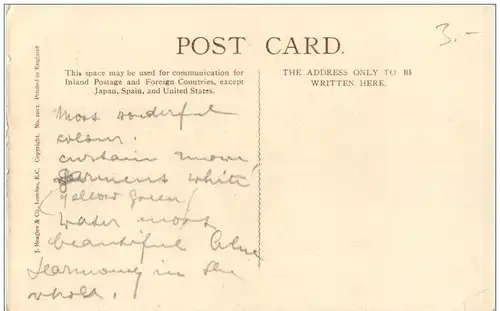 3.-
POST CARD.
This space may be used for communication for
Inland Postage and Foreign Countries, except
Japan, Spain, and United States.
THE ADDRESS ONLY TO BE
WRITTEN HERE.
J. Beagles & Co., London, E.C. Copyright. No. Printed in England
Most wonderful
colour.
curtain mauve
garment white
(yellow green)
water most
beautiful blue
Harmony in the
whole.